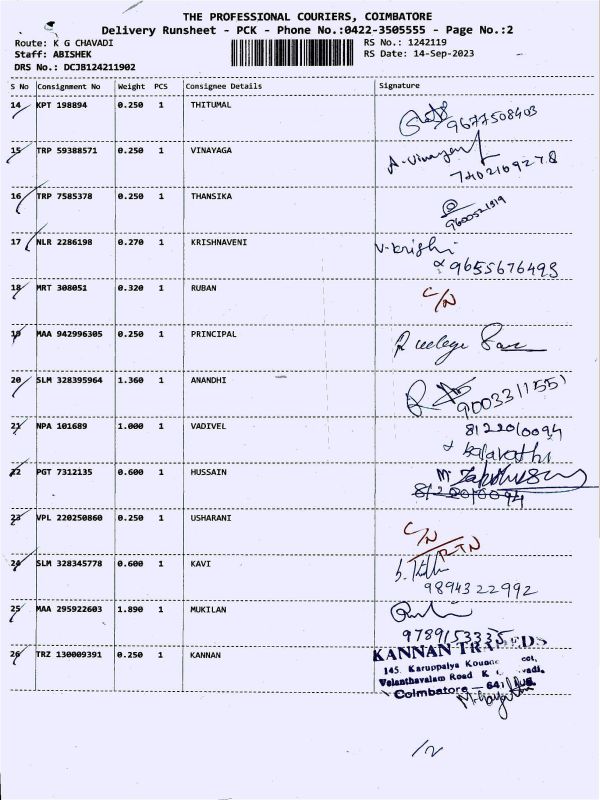 THE PROFESSIONAL COURIERS, COIMBATORE
Delivery Runsheet - PCK - Phone No.:0422-3505555 - Page No.:2
Route: K G CHAVADI RS No.: 1242119
Staff: ABISHEK RS Date: 14-Sep-2023
DRS No.: DCJB124211902
S No Consignment No Weight PCS Consignee Details Signature
14 KPT 198894 0.250 1 THITUMAL
9677508403
15 TRP 59388571 0.250 1 VINAYAGA
A. Vinayen
7402109278
16 TRP 7585378 0.250 1 THANSIKA
9600521919
17 NLR 2286198 0.270 1 KRISHNAVENI V. krishi
9655676493
18 MRT 308051 0.320 1 RUBAN C/N
19 MAA 942996305 0.250 1 PRINCIPAL
20 SLM 328395964 1.360 1 ANANDHI
9003311551
21 NPA 101689 1.000 1 VADIVEL 8122010094
kalavathi
22 PGT 7312135 0.600 1 HUSSAIN
8122010094
23 VPL 220250860 0.250 1 USHARANI C/N
RTN
24 SLM 328345778 0.600 1 KAVI
9894322992
25 MAA 295922603 1.890 1 MUKILAN
9789153335
26 TRZ 130009391 0.250 1 KANNAN KANNAN
145, Karuppaiya
Velanthavalam Road K
Coimbatore - 641
1/2